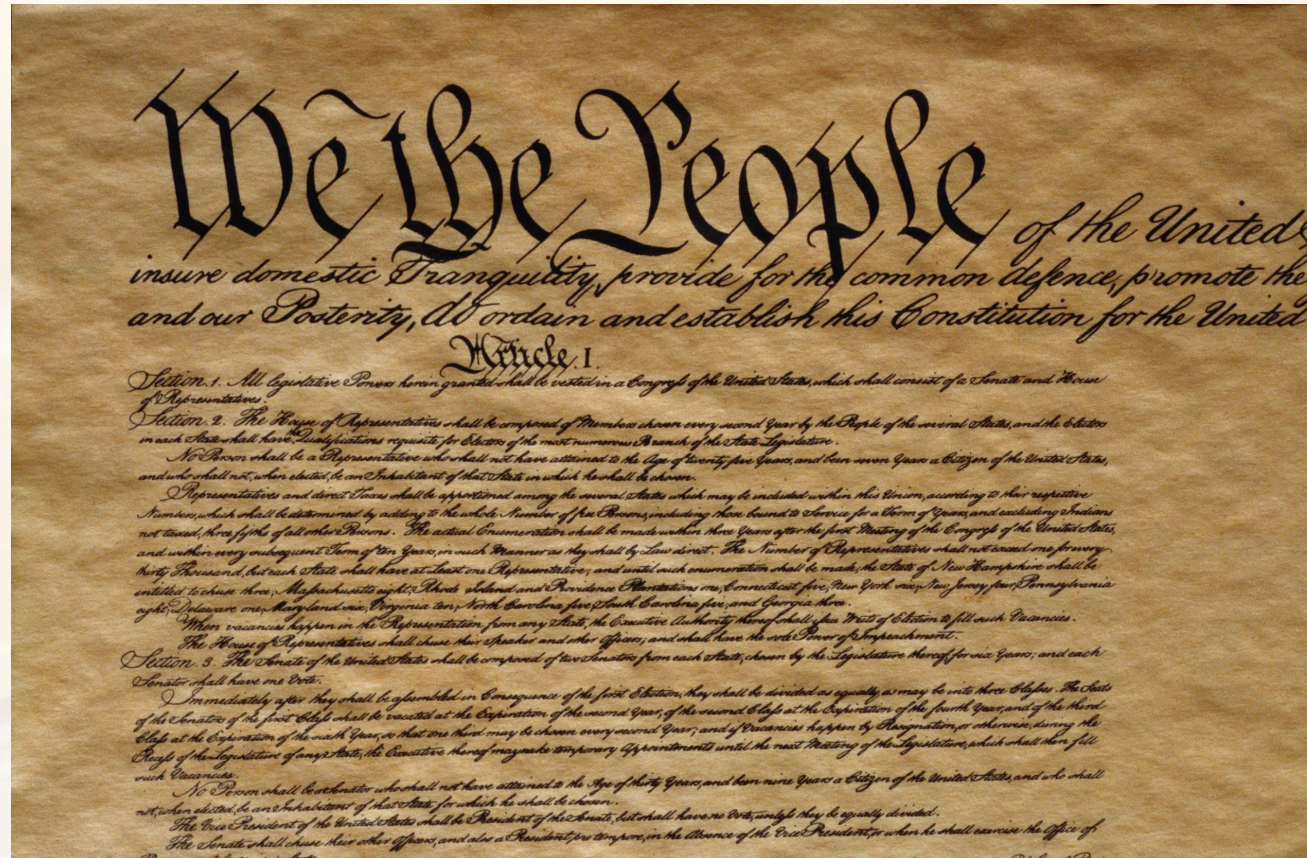 We the People of the United S
insure domestic Tranquility, provide for the common defence, promote the
and our Posterity, do ordain and establish this Constitution for the United
Article. I.
Section. 1. All legislative Powers herein granted shall be vested in a Congress of the United States, which shall consist of a Senate and House
of Representatives.
Section. 2. The House of Representatives shall be composed of Members chosen every second Year by the People of the several States, and the Electors
in each State shall have Qualifications requisite for Electors of the most numerous Branch of the State Legislature.
No Person shall be a Representative who shall not have attained to the Age of twenty five Years, and been seven Years a Citizen of the United States,
and who shall not, when elected, be an Inhabitant of that State in which he shall be chosen.
Representatives and direct Taxes shall be apportioned among the several States which may be included within this Union, according to their respective
Numbers, which shall be determined by adding to the whole Number of free Persons, including those bound to Service for a Term of Years, and excluding Indians
not taxed, three fifths of all other Persons. The actual Enumeration shall be made within three Years after the first Meeting of the Congress of the United States,
and within every subsequent Term of ten Years, in such Manner as they shall by Law direct. The Number of Representatives shall not exceed one for every
thirty Thousand, but each State shall have at Least one Representative; and until such enumeration shall be made, the State of New Hampshire shall be
entitled to chuse three, Massachusetts eight, Rhode Island and Providence Plantations one, Connecticut five, New York six, New Jersey four, Pennsylvania
eight, Delaware one, Maryland six, Virginia ten, North Carolina five, South Carolina five, and Georgia three.
When vacancies happen in the Representation from any State, the Executive Authority thereof shall issue Writs of Election to fill such Vacancies.
The House of Representatives shall chuse their Speaker and other Officers; and shall have the sole Power of Impeachment.
Section. 3. The Senate of the United States shall be composed of two Senators from each State, chosen by the Legislature thereof, for six Years; and each
Senator shall have one Vote.
Immediately after they shall be assembled in Consequence of the first Election, they shall be divided as equally as may be into three Classes. The Seats
of the Senators of the first Class shall be vacated at the Expiration of the second Year, of the second Class at the Expiration of the fourth Year, and of the third
Class at the Expiration of the sixth Year, so that one third may be chosen every second Year; and if Vacancies happen by Resignation, or otherwise, during the
Recess of the Legislature of any State, the Executive thereof may make temporary Appointments until the next Meeting of the Legislature, which shall then fill
such Vacancies.
No Person shall be a Senator who shall not have attained to the Age of thirty Years, and been nine Years a Citizen of the United States, and who shall
not, when elected, be an Inhabitant of that State for which he shall be chosen.
The Vice President of the United States shall be President of the Senate, but shall have no Vote, unless they be equally divided.
The Senate shall chuse their other Officers, and also a President pro tempore, in the Absence of the Vice President, or when he shall exercise the Office of